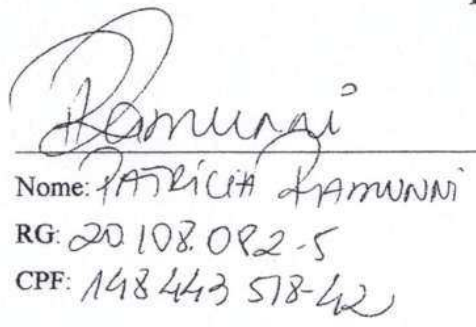 Ramunni
Nome: PATRÍCIA RAMUNNI
RG: 20.108.082-5
CPF: 148443518-42